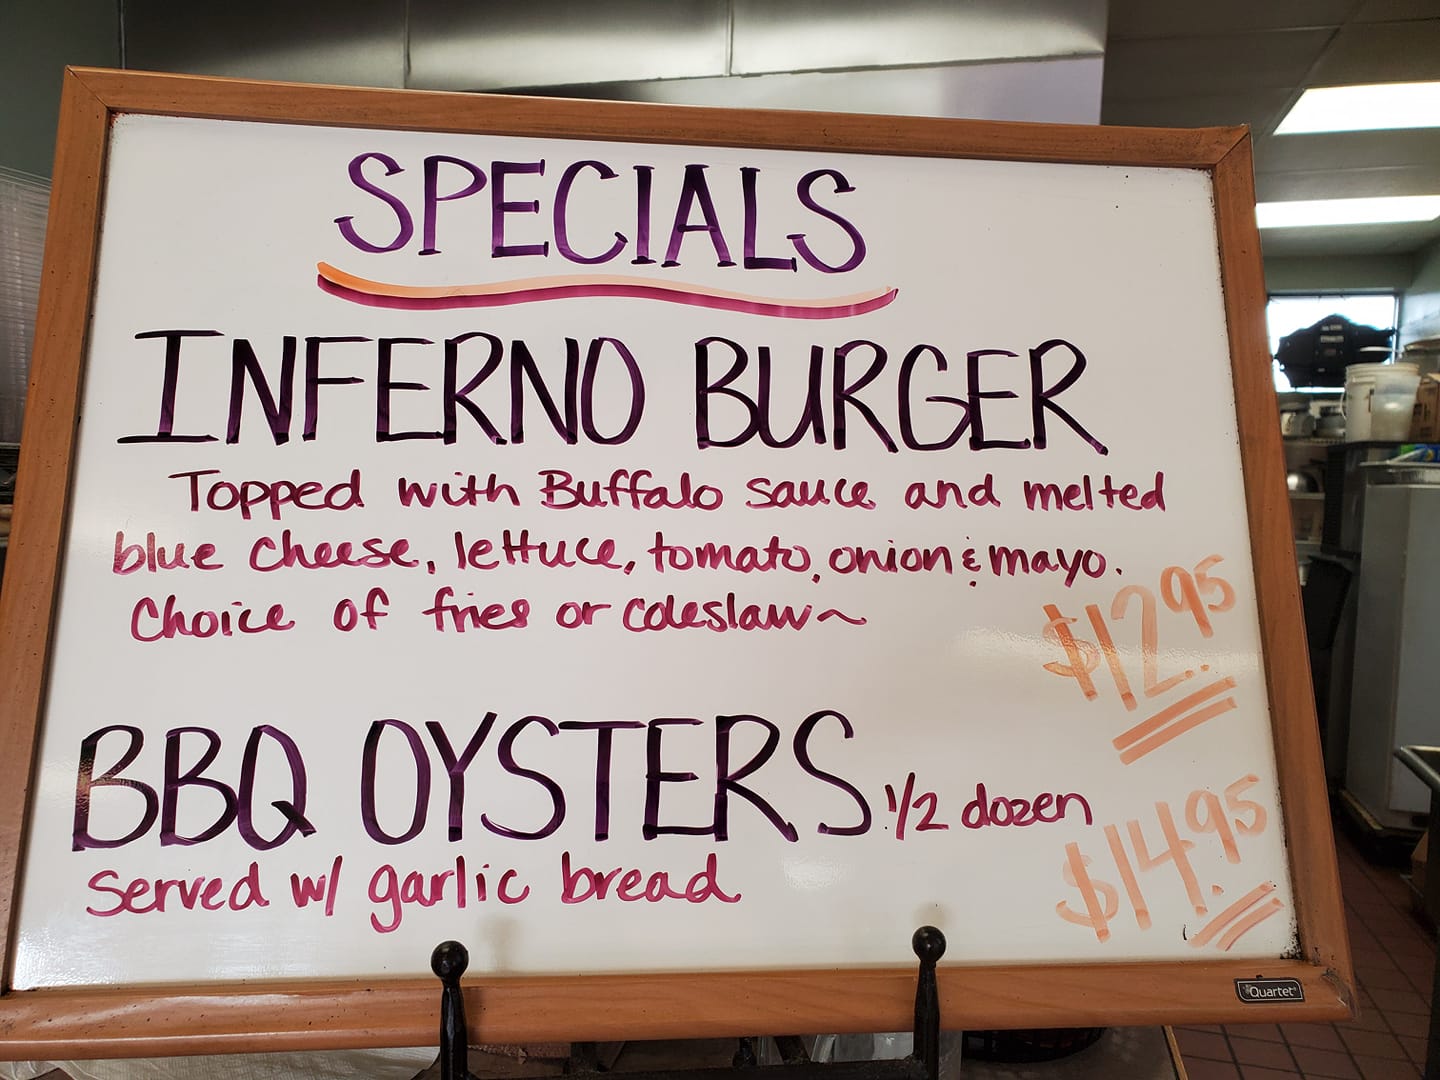 SPECIALS
INFERNO BURGER
Topped with Buffalo sauce and melted
blue cheese, lettuce, tomato, onion & mayo.
Choice of fries or coleslaw~
$12.95
BBQ OYSTERS 1/2 dozen
Served w/ garlic bread
$14.95
Quartet